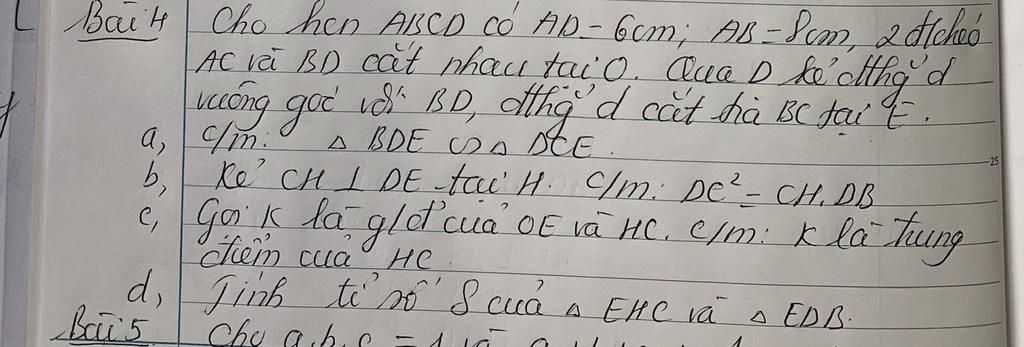 Bài 4 Cho hcn ABCD có AD = 6cm; AB = 8cm, 2 đ/chéo
AC và BD cắt nhau tại O. Qua D kẻ đthg d
vuông góc với BD, đthg d cắt tia BC tại E.
a, C/m: △ BDE ∽ △ DCE.
b, Kẻ CH ⊥ DE tại H. C/m: DC² = CH.DB
c, Gọi K là g/đ của OE và HC. C/m: K là trung
điểm của HC
d, Tính tỉ số S của △ EHC và △ EDB.
Bài 5 Cho a.b.c = 1 và